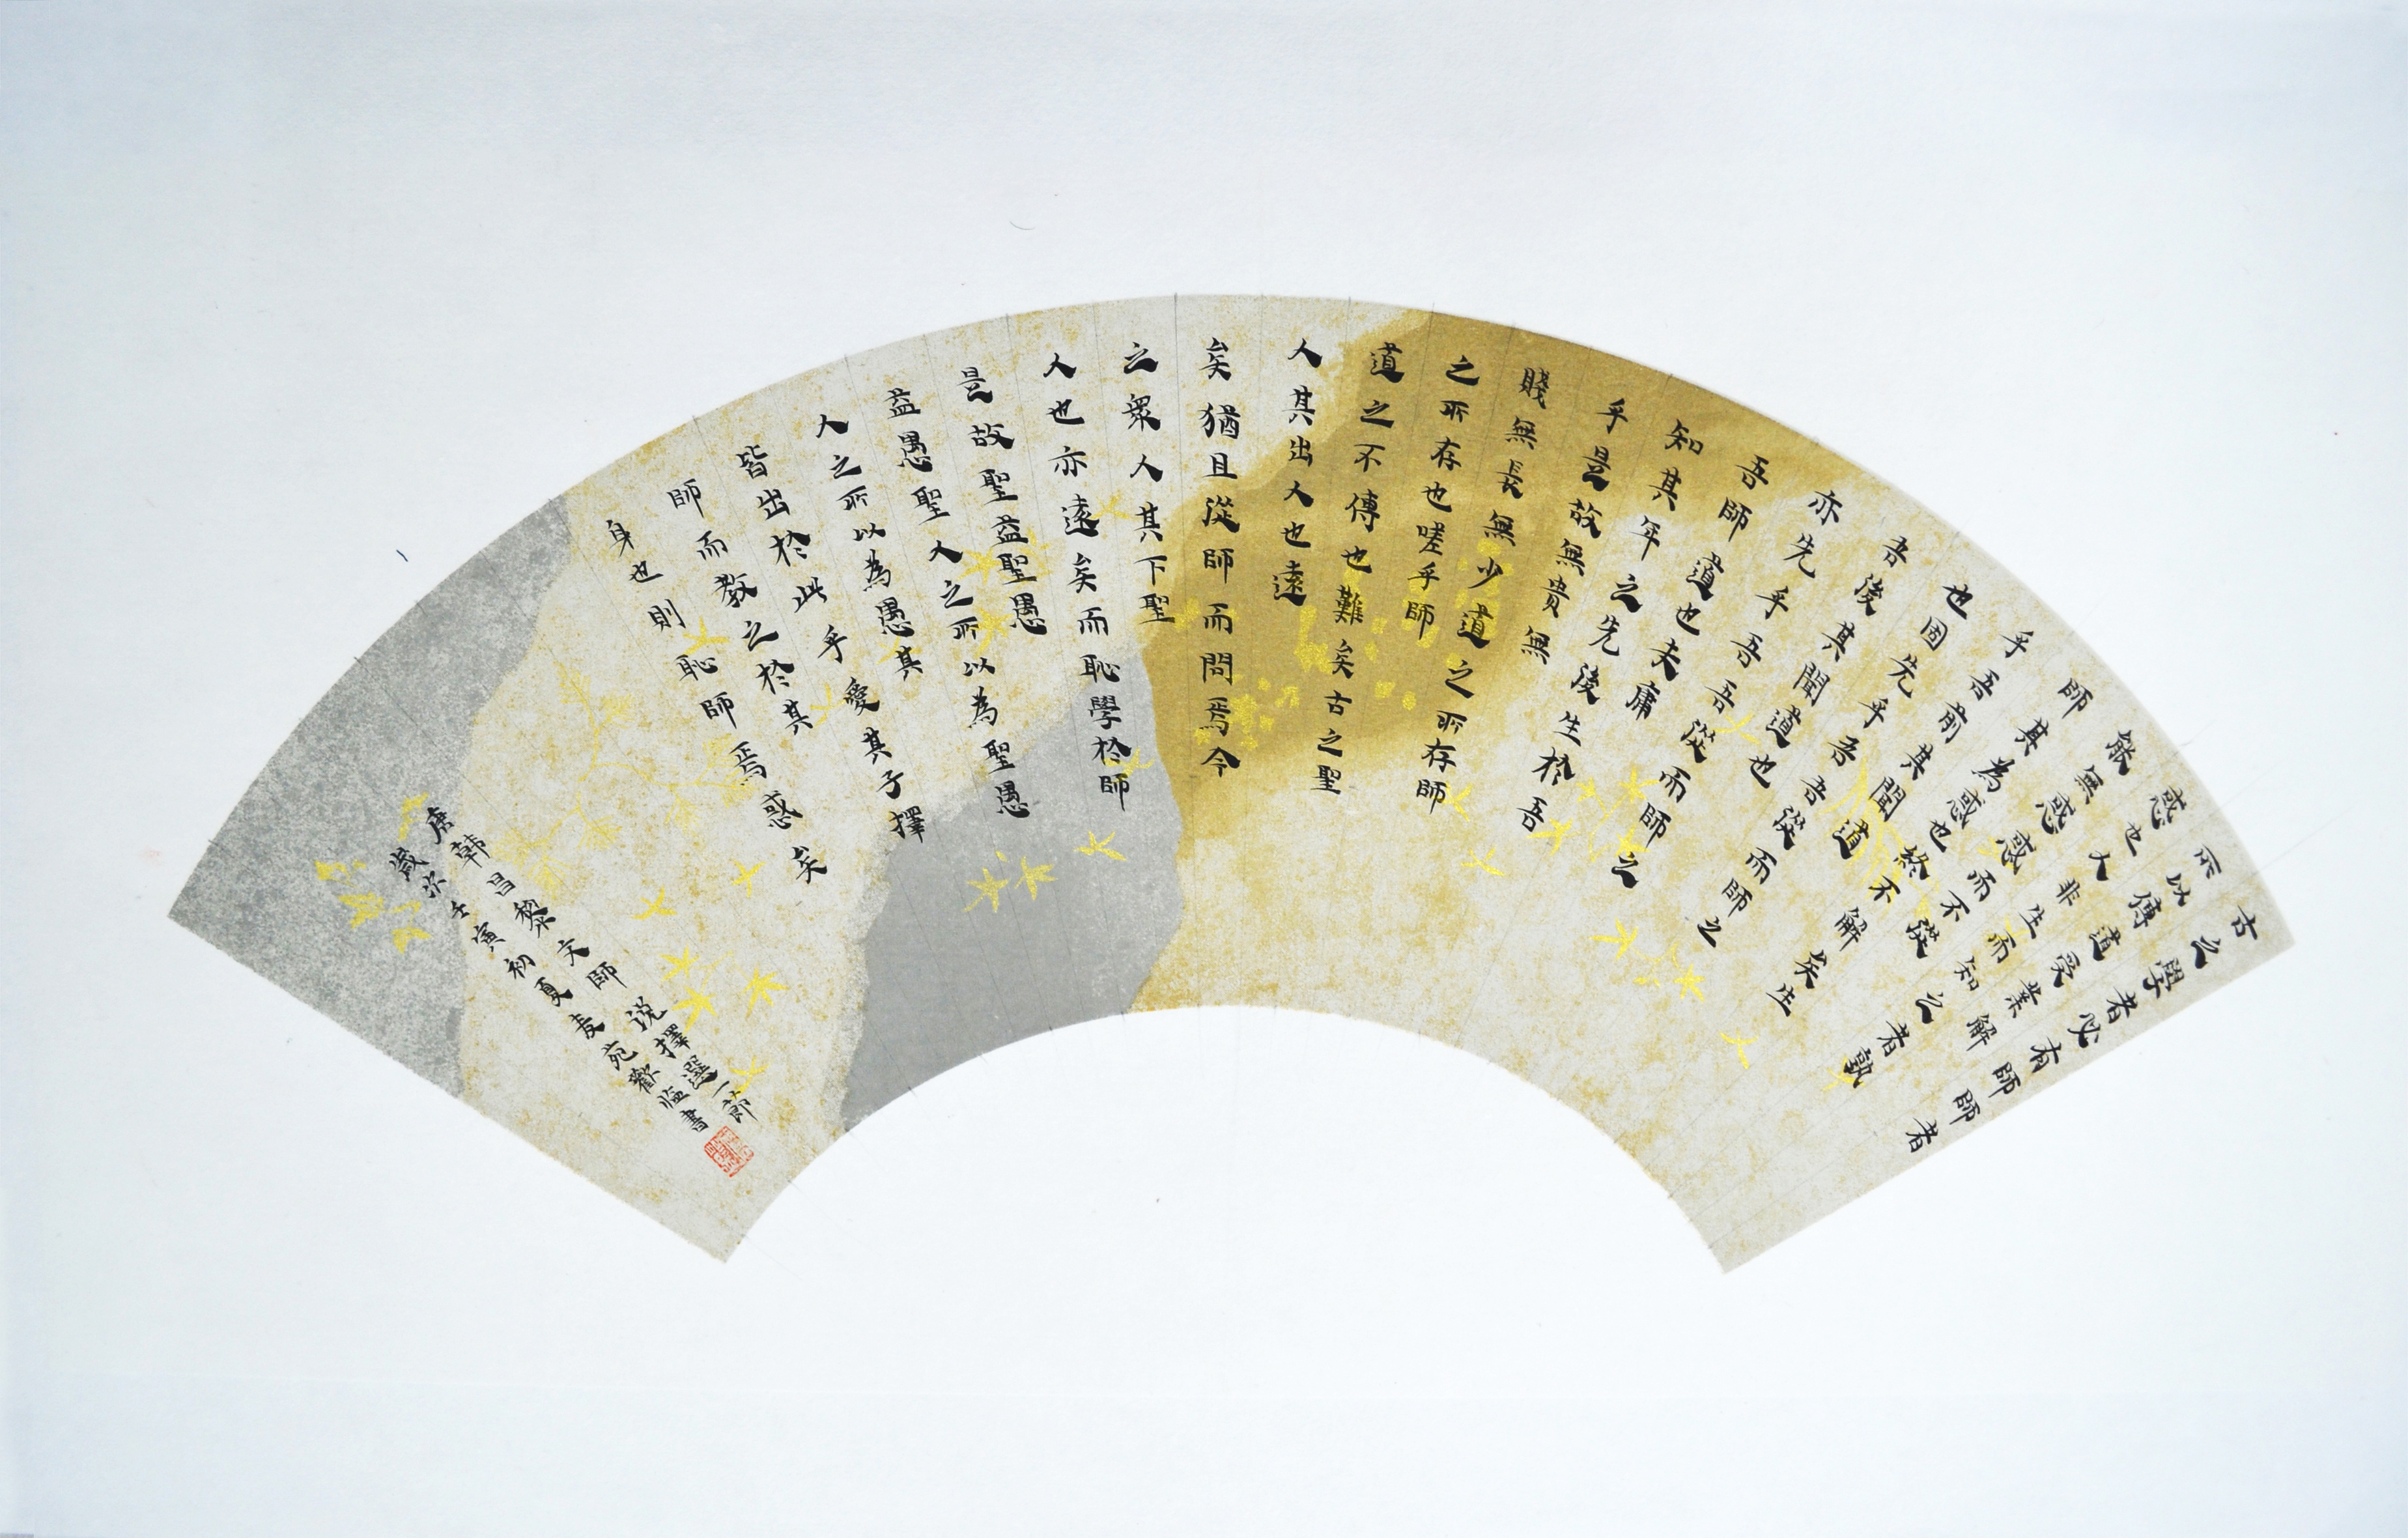 古之學者必有師師者
所以傳道受業解
惑也人非生而知之者孰
能無惑惑而不從
師其為惑也終不解矣生
乎吾前其聞道
也固先乎吾吾從而師之
吾後其聞道也
亦先乎吾吾從而師之
吾師道也夫庸
知其年之先後生於吾
乎是故無貴無
賤無長無少道之所存師
之所存也嗟乎師
道之不傳也難矣古之聖
人其出人也遠
矣猶且從師而問焉今
之眾人其下聖
人也亦遠矣而恥學於師
是故聖益聖愚
益愚聖人之所以為聖愚
人之所以為愚其
皆出於此乎愛其子擇
師而教之於其
身也則恥師焉惑矣
唐韩昌黎文師说擇選一節
歲次壬寅初夏麦苑歡临書